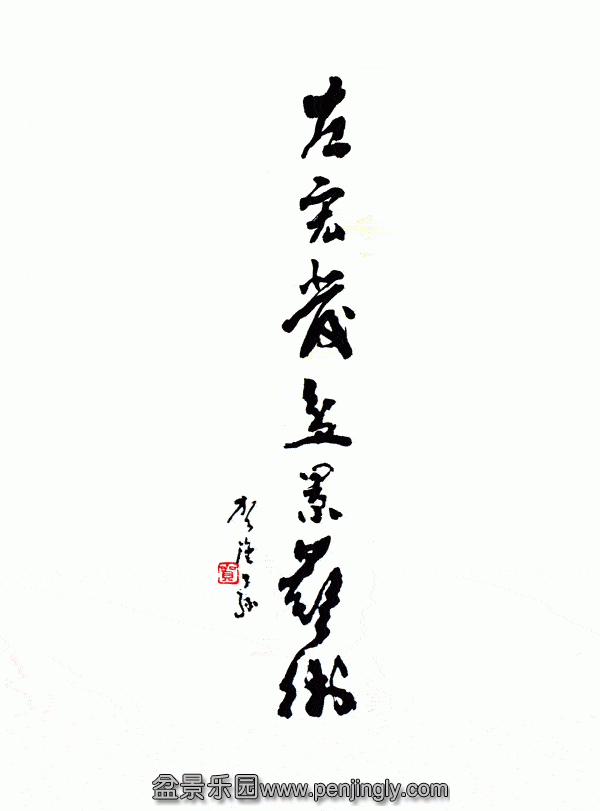 左宏發盆景藝術
賀
盆景乐园www.penjingly.com